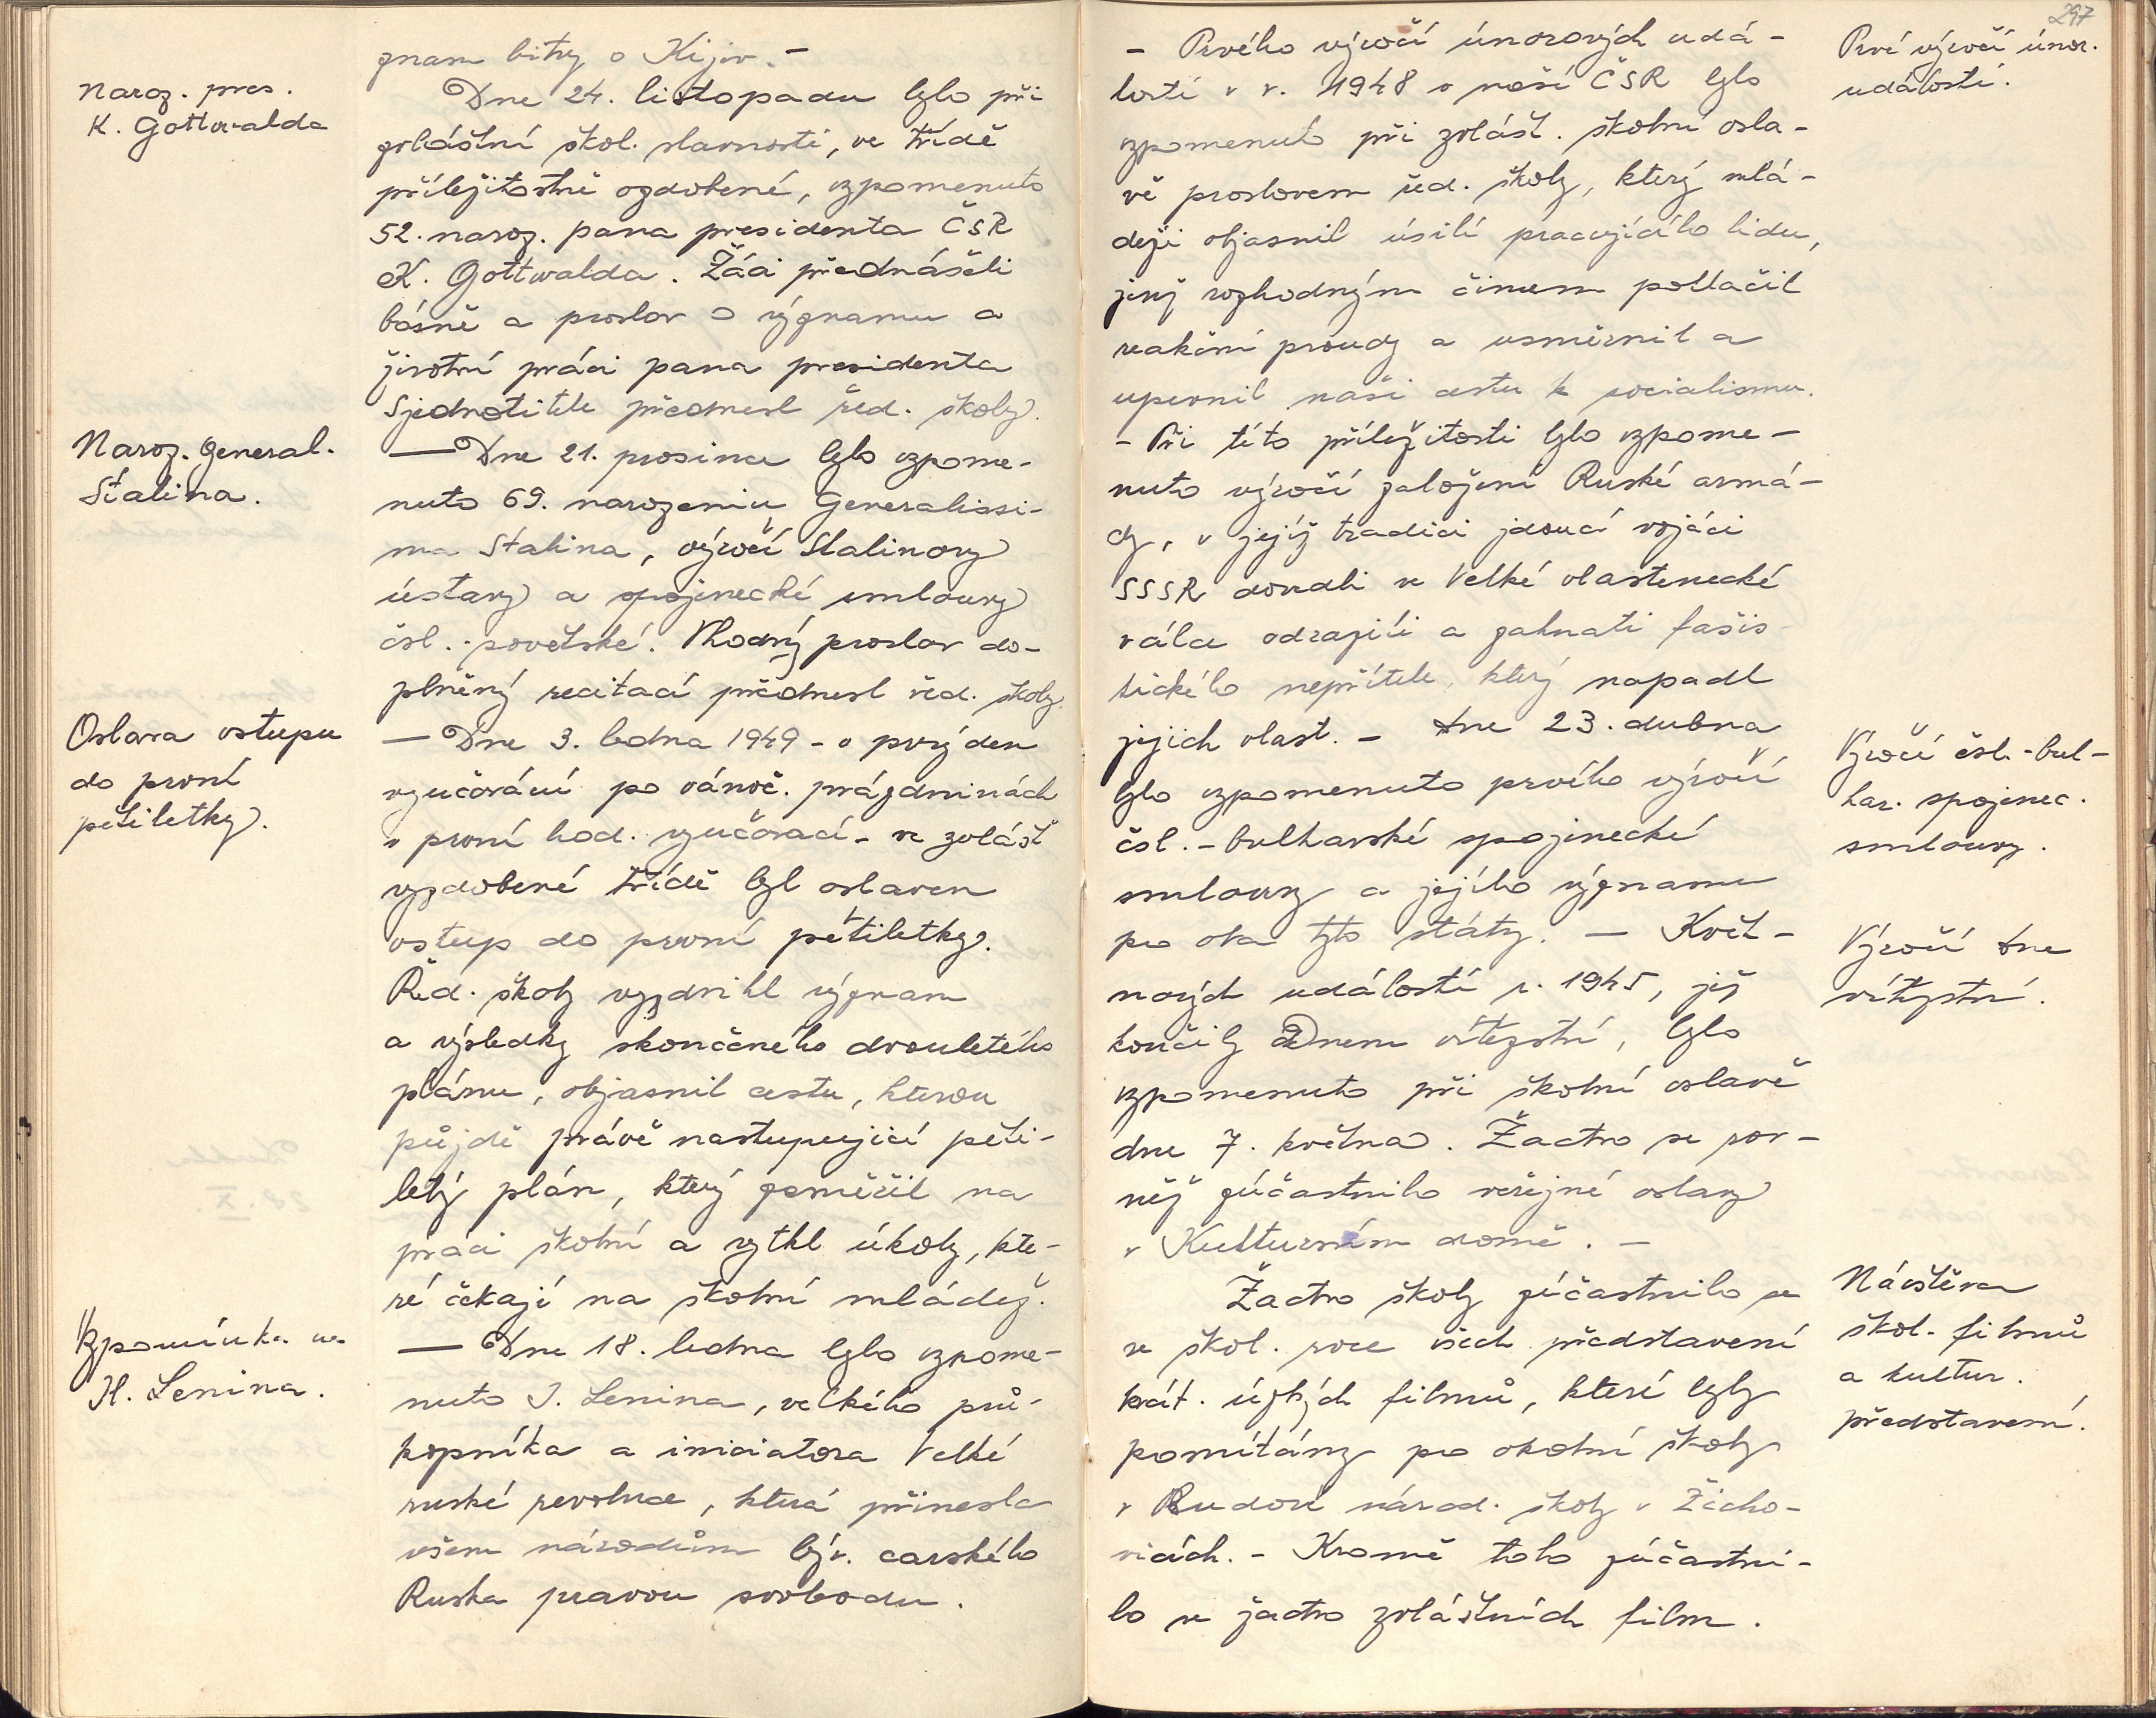 Naroz. pres.
K. Gottwalda
Naroz. General.
Stalina.
Oslava vstupu
do první
pětiletky.
Vzpomínka na
H. Lenina.
znam bitvy o Kijev. –
Dne 24. listopadu bylo při
zvláštní škol. slavnosti, ve třídě
příležitostně ozdobené, vzpomenuto
52. naroz. pana presidenta ČSR
K. Gottwalda. Žáci přednášeli
básně a proslov o významu a
životní práci pana presidenta
Sjednotitele přednesl řed. školy.
— Dne 21. prosince bylo vzpome-
nuto 69. narozenin Generalissi-
ma Stalina, výročí Stalinovy
ústavy a spojenecké smlouvy
čsl.-sovětské. Vhodný proslov do-
plněný recitací přednesl řed. školy.
— Dne 3. ledna 1949 - v prvý den
vyučování po vánoč. prázdninách
v první hod. vyučovací - ve zvlášť
vyzdobené třídě byl oslaven
vstup do první pětiletky.
Řed. školy vyzdvihl význam
a výsledky skončeného dvouletého
plánu, objasnil cestu, kterou
půjdě právě nastupující pěti-
letý plán, který zaměřil na
práci školní a vytkl úkoly, kte-
ré čekají na školní mládež.
— Dne 18. ledna bylo vzpome-
nuto I. Lenina, velkého prů-
kopníka a iniciatora Velké
ruské revoluce, která přinesla
všem národům býv. carského
Ruska pravou svobodu.
297
– Prvého výročí únorových udá-
lostí v r. 1948 v naší ČSR bylo
vzpomenuto při zvlášt. školní osla-
vě proslovem řed. školy, který mlá-
deži objasnil úsilí pracujícího lidu,
jenž rozhodným činem potlačil
reakční proudy a usměrnil a
upevnil naši cestu k socialismu.
- Při této příležitosti bylo vzpome-
nuto výročí založení Ruské armá-
dy, v jejíž tradici jdoucí vojáci
SSSR dovedli ve Velké vlastenecké
válce odraziti a zahnati fašis-
tického nepřítele, který napadl
jejich vlast. – Dne 23. dubna
bylo vzpomenuto prvího výročí
čsl. - bulharské spojenecké
smlouvy a jejího významu
pro oba tyto státy. — Květ-
nových událostí r. 1945, jež
končily Dnem vítězství, bylo
vzpomenuto při školní oslavě
dne 7. května. Žactvo se rov-
něž zúčastnilo veřejné oslavy
v Kulturním domě. –
Žactvo školy zúčastnilo se
ve škol. roce všech představení
krát. úzkých filmů, které byly
promítány pro okolní školy
v Budově národ. školy v Žicho-
vicích. - Kromě toho zúčastni-
lo se žactvo zvláštních film.
Prvé výročí únor.
událostí.
Výročí čsl.-bul-
har. spojenec.
smlouvy.
Výročí Dne
vítězství.
Návštěva
škol. filmů
a kultur.
představení.